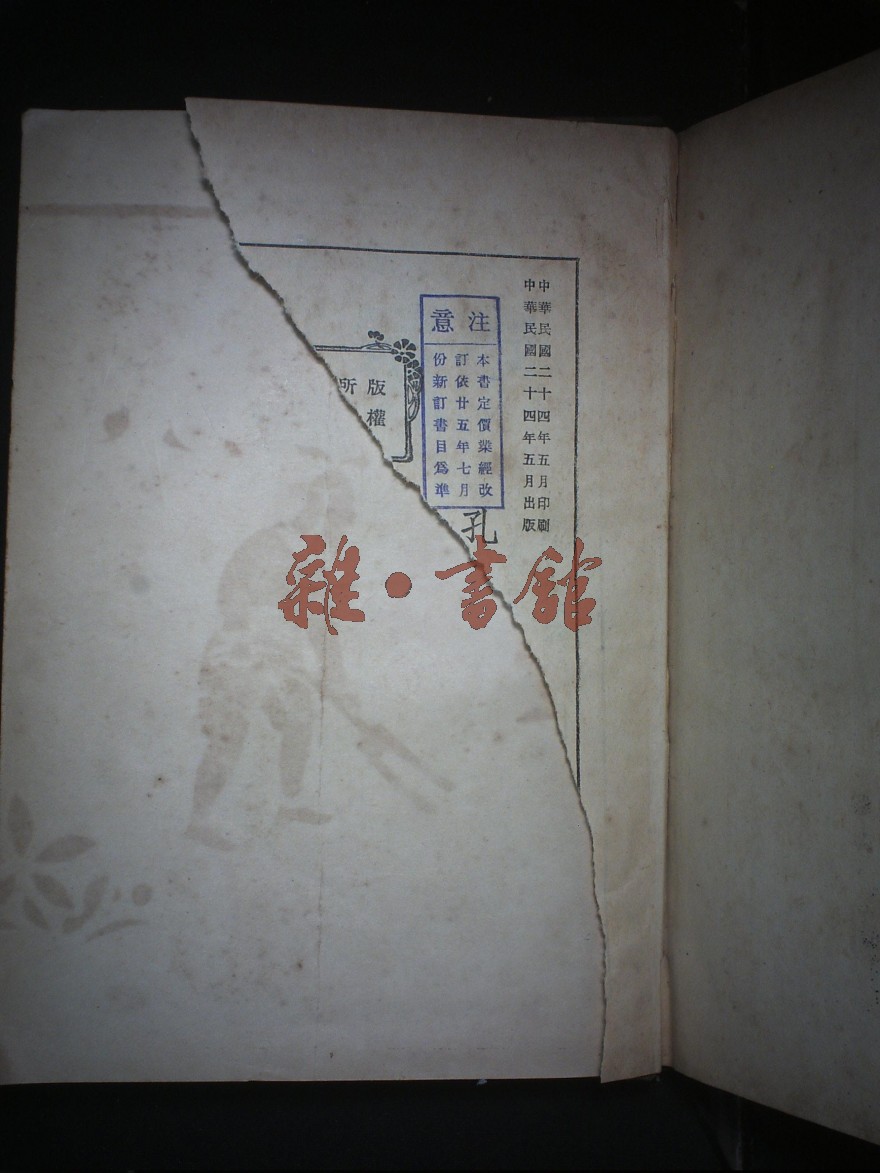 中華民國二十四年五月印刷
中華民國二十四年五月出版
注意
本書定價業經改
訂依廿五年七月
份新訂書目爲準
孔
版權
所
雜·書館